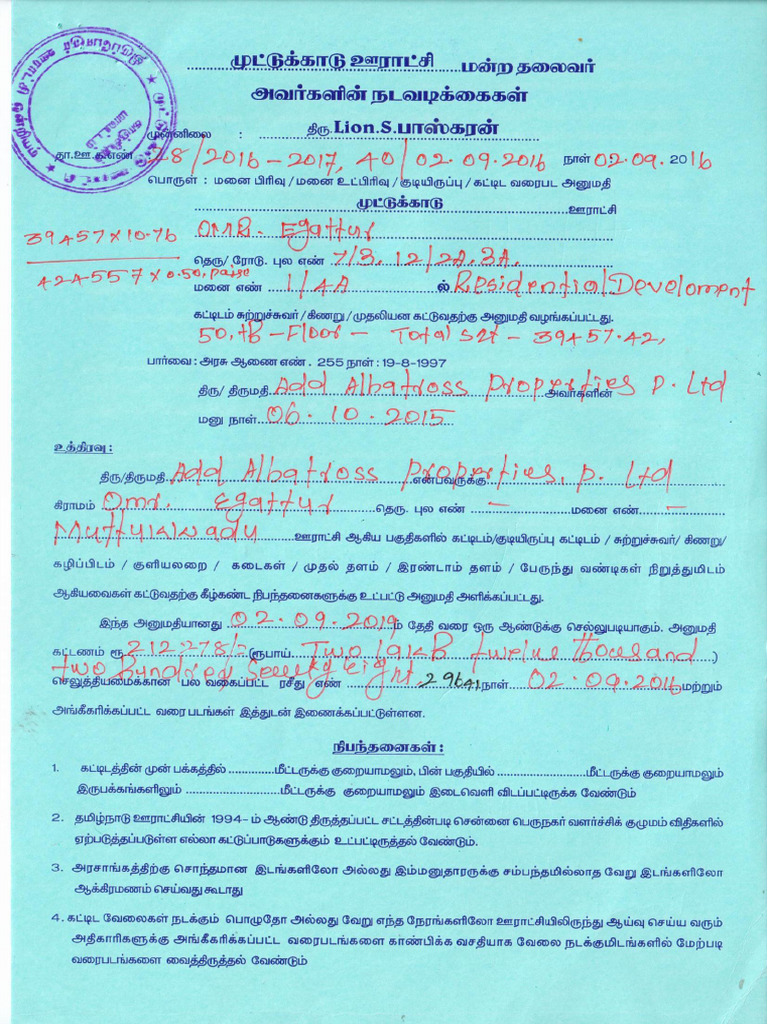 முட்டுக்காடு ஊராட்சி மன்ற தலைவர்
அவர்களின் நடவடிக்கைகள்
முன்னிலை : திரு.Lion.S.பாஸ்கரன்
தா.ஊ.க.எண் 28/2016-2017, 40/02.09.2016 நாள் 02.09.2016
பொருள் : மனை பிரிவு / மனை உட்பிரிவு / குடியிருப்பு / கட்டிட வரைபட அனுமதி
முட்டுக்காடு ஊராட்சி
39457x10.76
OMR. Egattur
தெரு/ ரோடு. புல எண் 7/3, 12/2A.3A.
424557x0.50. Paise
மனை எண் 1/4A ல் Residential Develoment
கட்டிடம் சுற்றுச்சுவர் / கிணறு / முதலியன கட்டுவதற்கு அனுமதி வழங்கப்பட்டது.
50,tB-Floor - Total 39457.42,
பார்வை : அரசு ஆணை எண் . 255 நாள் : 19-8-1997
திரு/ திருமதி Add Albatross Properties P. Ltd அவர்களின்
மனு நாள் 06.10.2015
உத்திரவு :
திரு/திருமதி Add Albatross Properties, P. Ltd என்பவருக்கு
கிராமம் Omr. Egattur தெரு. புல எண் - மனை எண் -
Muttukkadu ஊராட்சி ஆகிய பகுதிகளில் கட்டிடம்/குடியிருப்பு கட்டிடம் / சுற்றுச்சுவர்/ கிணறு/
கழிப்பிடம் / குளியலறை / கடைகள் / முதல் தளம் / இரண்டாம் தளம் / பேருந்து வண்டிகள் நிறுத்துமிடம்
ஆகியவைகள் கட்டுவதற்கு கீழ்கண்ட நிபந்தனைகளுக்கு உட்பட்டு அனுமதி அளிக்கப்பட்டது.
இந்த அனுமதியானது 02.09.2019ம் தேதி வரை ஒரு ஆண்டுக்கு செல்லுபடியாகும். அனுமதி
கட்டணம் ரூ 212,278/- (ரூபாய். Two lakB twelve thousand)
two Bundred Seventy eight
செலுத்தியமைக்கான பல வகைப்பட்ட ரசீது எண் 29641 நாள் 02.09.2016 மற்றும்
அங்கீகரிக்கப்பட்ட வரை படங்கள் இத்துடன் இணைக்கப்பட்டுள்ளன.
நிபந்தனைகள் :
1. கட்டிடத்தின் முன் பக்கத்தில் ...............மீட்டருக்கு குறையாமலும், பின் பகுதியில் ...............மீட்டருக்கு குறையாமலும்
இருபக்கங்களிலும் ...............மீட்டருக்கு குறையாமலும் இடைவெளி விடப்பட்டிருக்க வேண்டும்
2. தமிழ்நாடு ஊராட்சியின் 1994- ம் ஆண்டு திருத்தப்பட்ட சட்டத்தின்படி சென்னை பெருநகர் வளர்ச்சிக் குழுமம் விதிகளில்
ஏற்படுத்தப்பட்டுள்ள எல்லா கட்டுப்பாடுகளுக்கும் உட்பட்டிருத்தல் வேண்டும்.
3. அரசாங்கத்திற்கு சொந்தமான இடங்களிலோ அல்லது இம்மனுதாரருக்கு சம்பந்தமில்லாத வேறு இடங்களிலோ
ஆக்கிரமணம் செய்வது கூடாது
4. கட்டிட வேலைகள் நடக்கும் பொழுதோ அல்லது வேறு எந்த நேரங்களிலோ ஊராட்சியிலிருந்து ஆய்வு செய்ய வரும்
அதிகாரிகளுக்கு அங்கீகரிக்கப்பட்ட வரைபடங்களை காண்பிக்க வசதியாக வேலை நடக்குமிடங்களில் மேற்படி
வரைபடங்களை வைத்திருத்தல் வேண்டும்